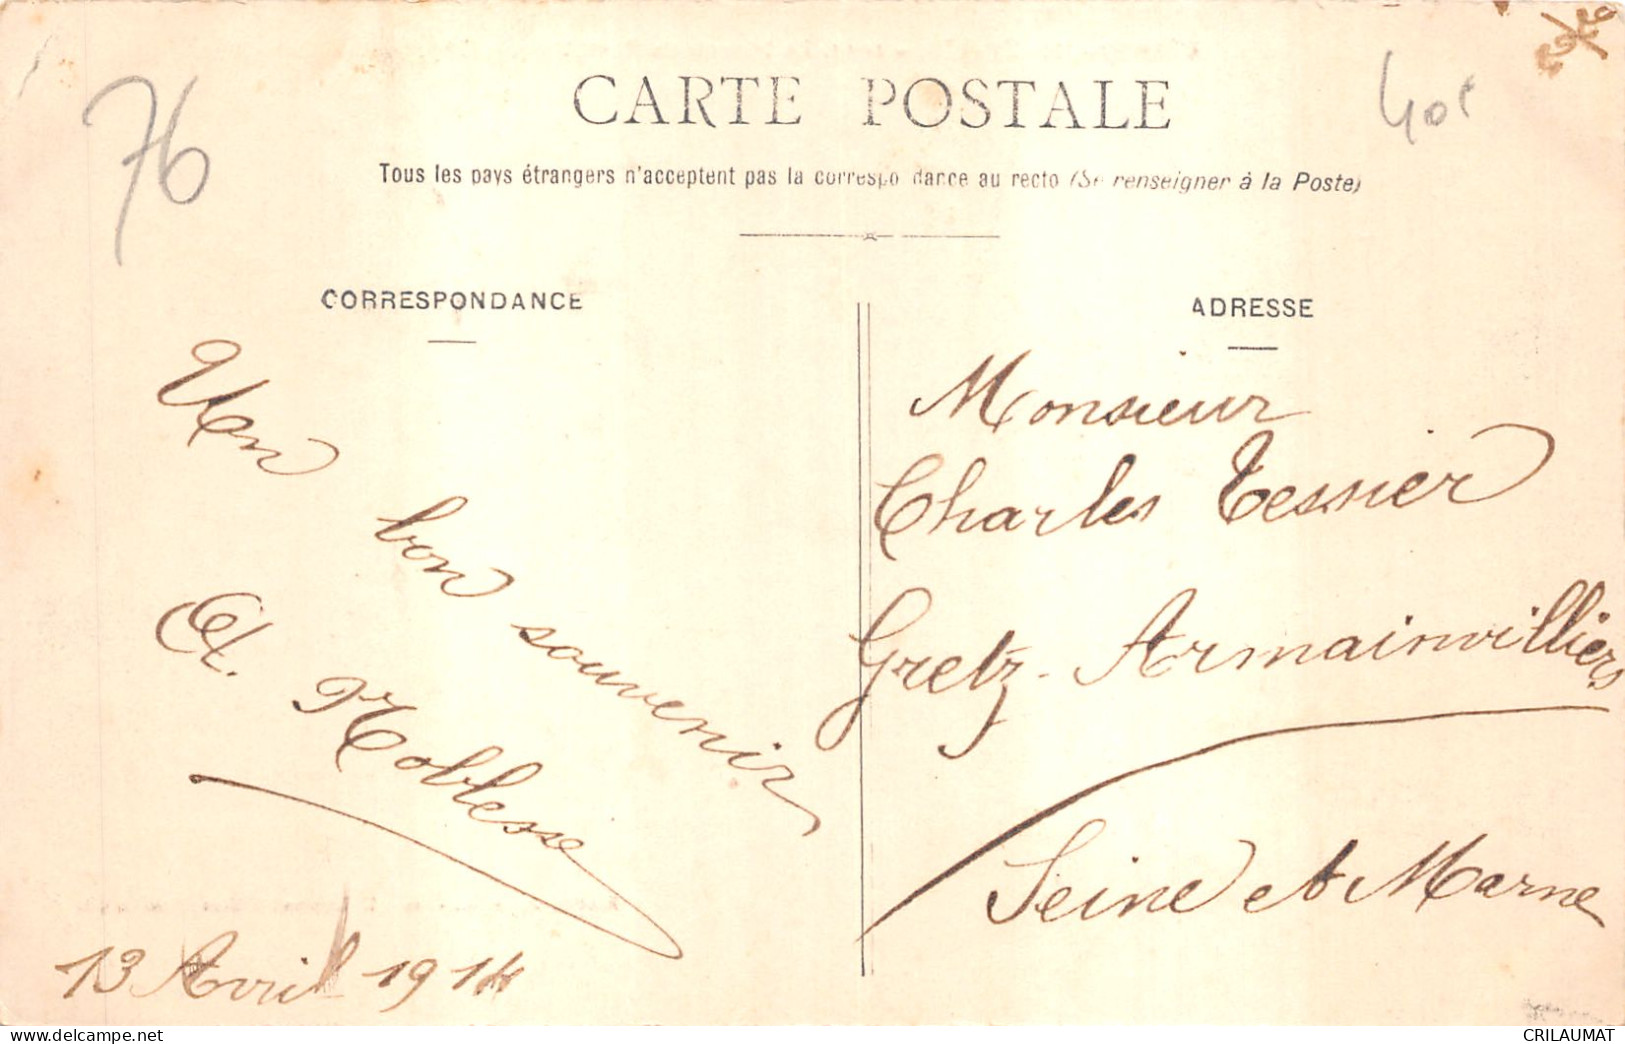 76
40
CARTE POSTALE
Tous les pays étrangers n'acceptent pas la correspondance au recto (Se renseigner à la Poste)
CORRESPONDANCE
Un bon souvenir
A. Noblesse
13 Avril 1914
ADRESSE
Monsieur
Charles Tessier
Gretz-Armainvilliers
Seine et Marne
www.delcampe.net
CRILAUMAT